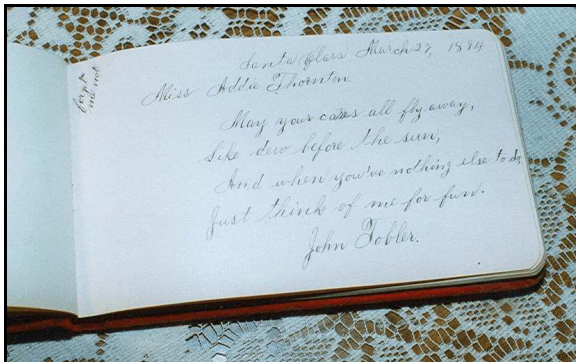 forget
me not
Santa Clara March 27, 1894
Miss Addie Thornton
May your cares all fly away,
Like dew before the sun,
And when you've nothing else to do,
Just think of me for fun.
John Tobler.